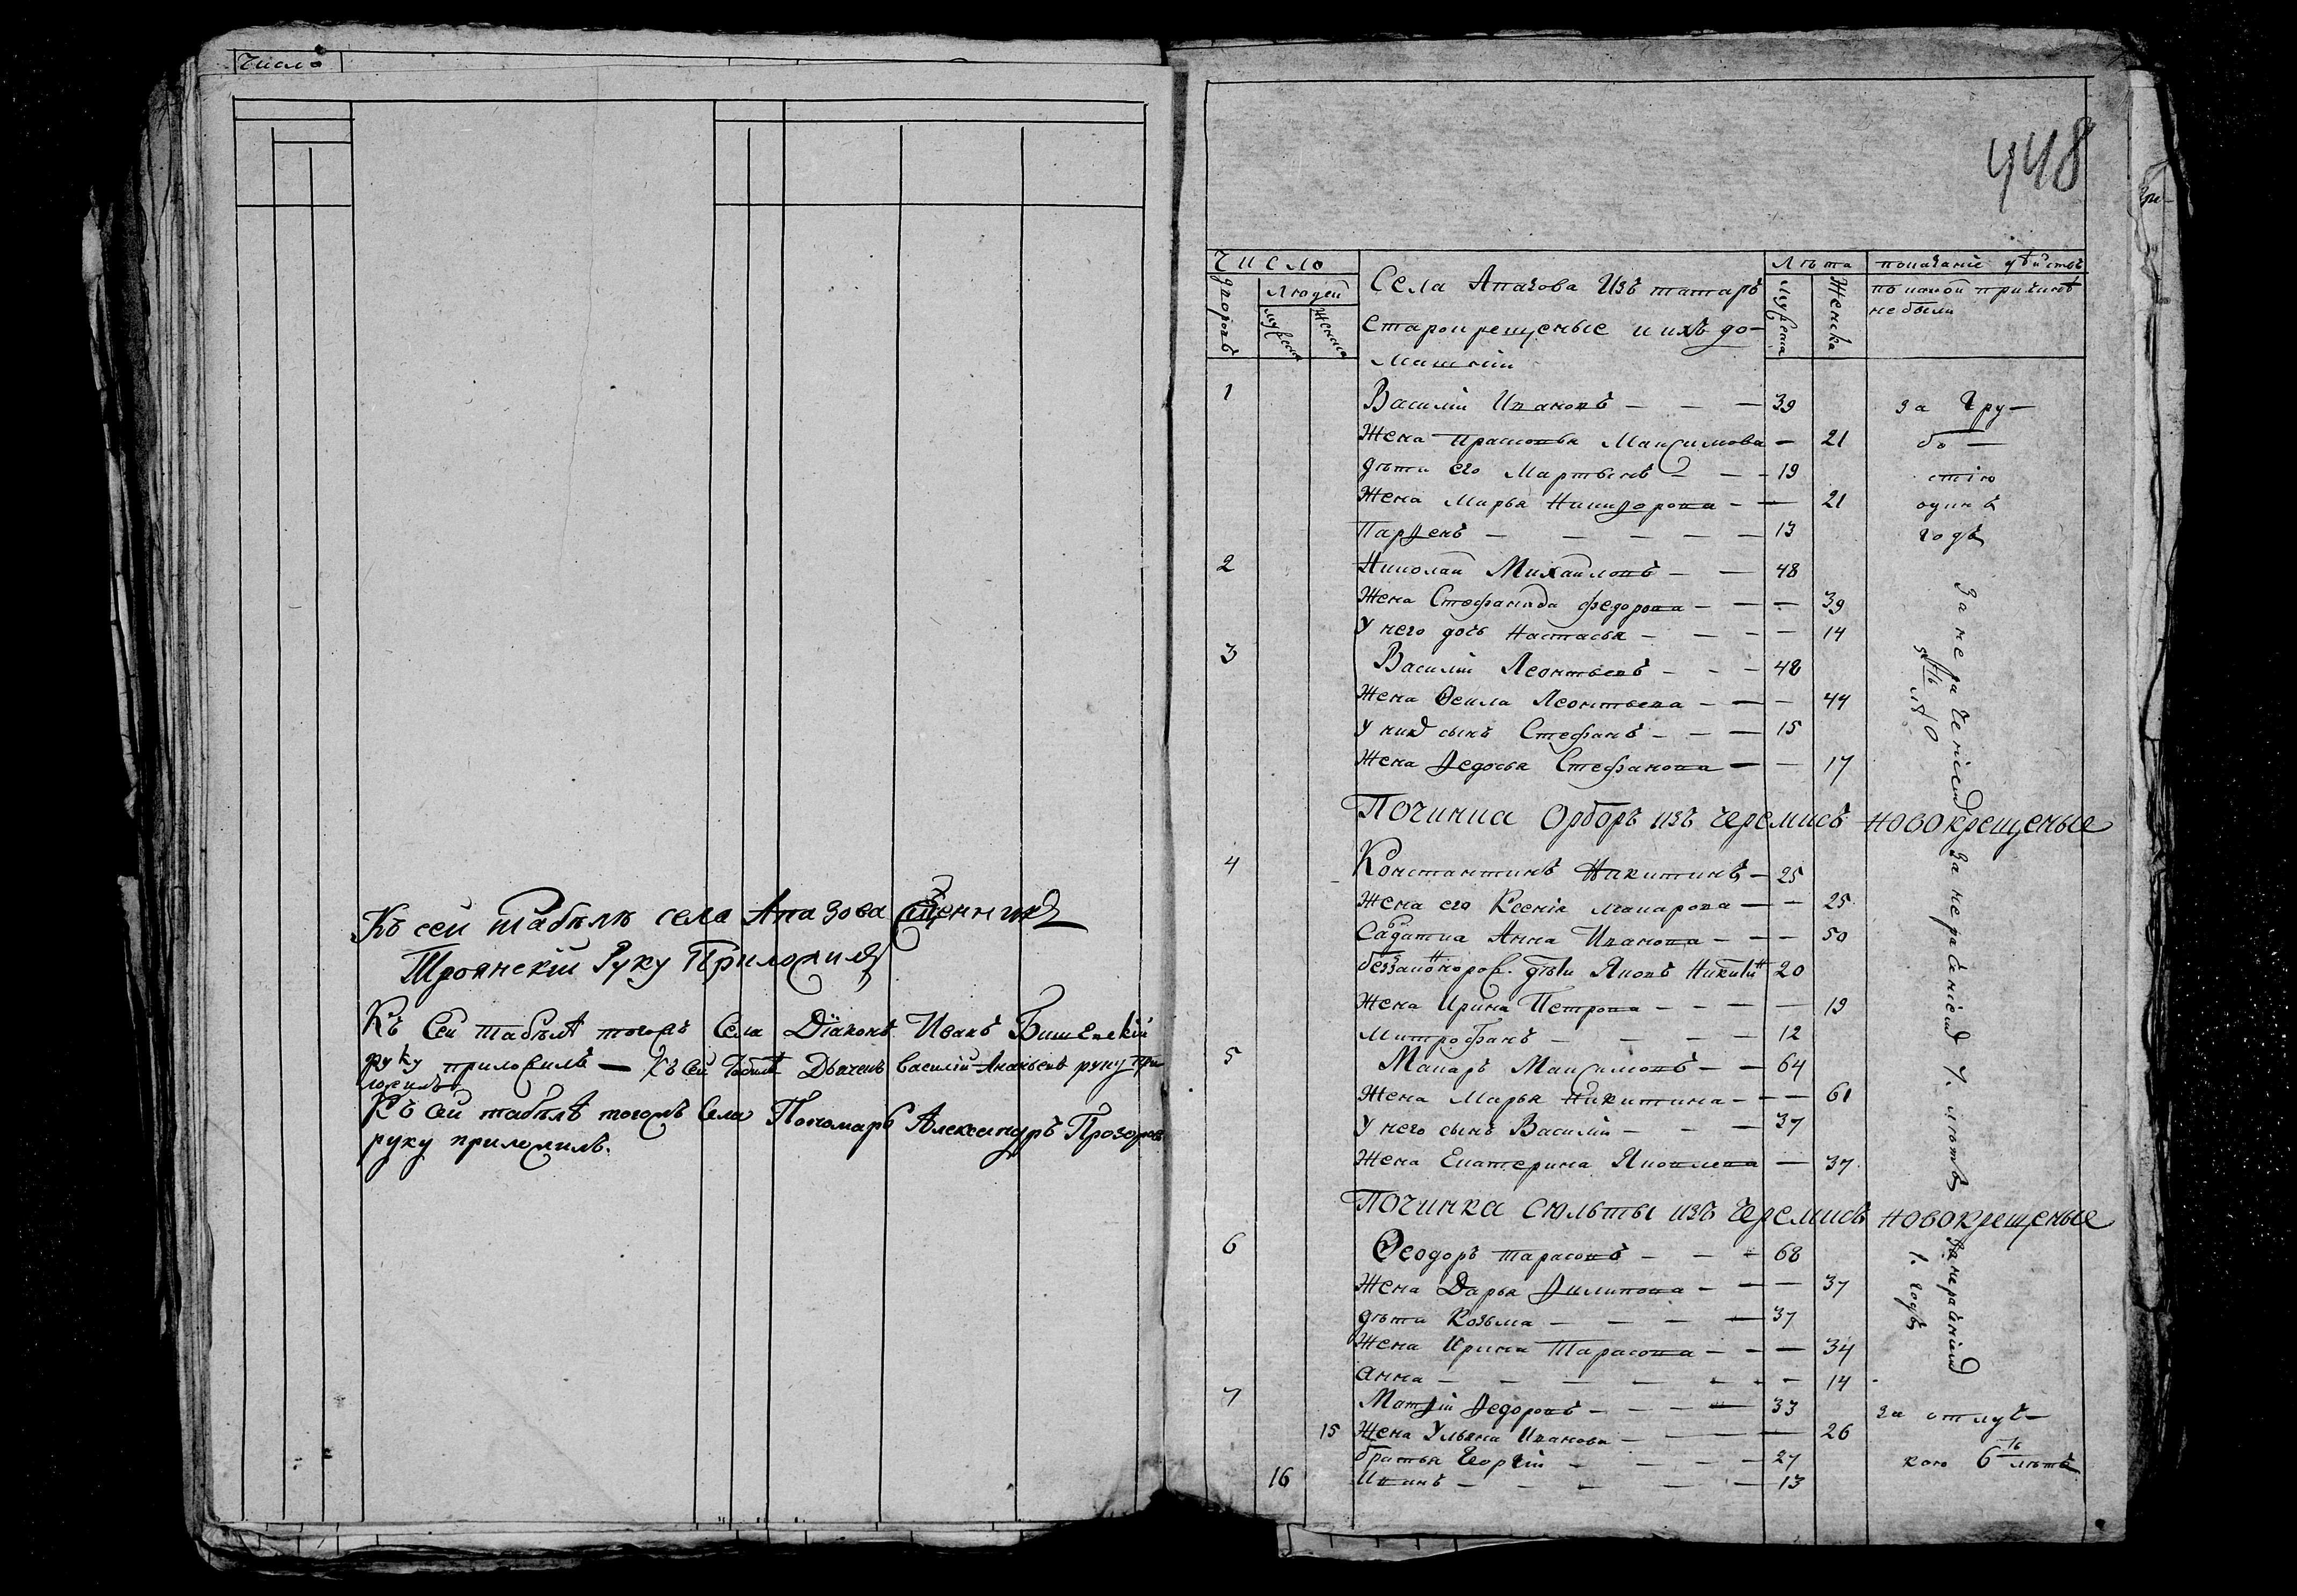 Число
Къ сей табѣлѣ села Апазова Сщенникъ
Троянскій Руку Приложилъ
Къ сей табѣлѣ тогожъ Села Діаконъ Иванъ
руку приложилъ — Къ сей табелѣ Дьячекъ василій Ананьевъ руку при
ложилъ
Къ сей табѣлѣ тогожъ Села Пономарь Александръ Прозоровъ
руку приложилъ.
448
Число
дворовъ
людей
мужска
женска
Села Апазова Изъ татаръ
Старокрещеные и ихъ до-
машніи
лѣта
мужска
Женска
показаніе
по какой причинѣ
небыли
1 Василіи Ивановъ — — — 39 за гру—
Жена Прасковья Максимова — 21 бо —
дѣти его Мартынъ — — 19 стію
Жена Марья Никифорова — — 21 одинъ
Парфенъ — — — — — 13 годъ
2 Николаи Михаиловъ — — 48
Жена Стефанида федорова — — — 39
У него дочь Настасья — — — — 14
3 Василіи Леонтьевъ — — — 48
Жена Ѳекла Леонтьева — — — 44
У нихъ сынъ Стефанъ — — — 15
Жена Федосья Стефанова — — 17
за нерачениемъ
Починка Орборъ изъ черемисъ новокрещеные
4 Константинъ Никитинъ — 25
Жена его Ксеніа макарова — — 25
Анна Иванова — — — 50
дѣти Яковъ Никитин 20
Жена Ирина Петрова — — — — 19
Митрофанъ — — — — 12
5 Макаръ Максимовъ — — 64
Жена Марья Никитина — — — 61
У него сынъ Василіи — — — 37
Жена Екатерина Яковлева — 37
за нерачениемъ 7. лѣтъ
Починка Сюльты изъ черемисъ новокрещеные
6 Ѳеодоръ тарасовъ — — — 68
Жена Дарья Филипова — — — 37
дѣти Козьма — — — — 37
Жена Ирина Тарасова — — — 34
Анна — — — — — — — 14
за нерачениемъ
1. годъ
7 Матфіи Федоровъ — — — — 33 за отлуч—
15 Жена Ульяна Иванова — — — — 26 кою 6 ть лѣтъ
братья Георгіи — — — — 27
16 Иванъ — — — — — 13